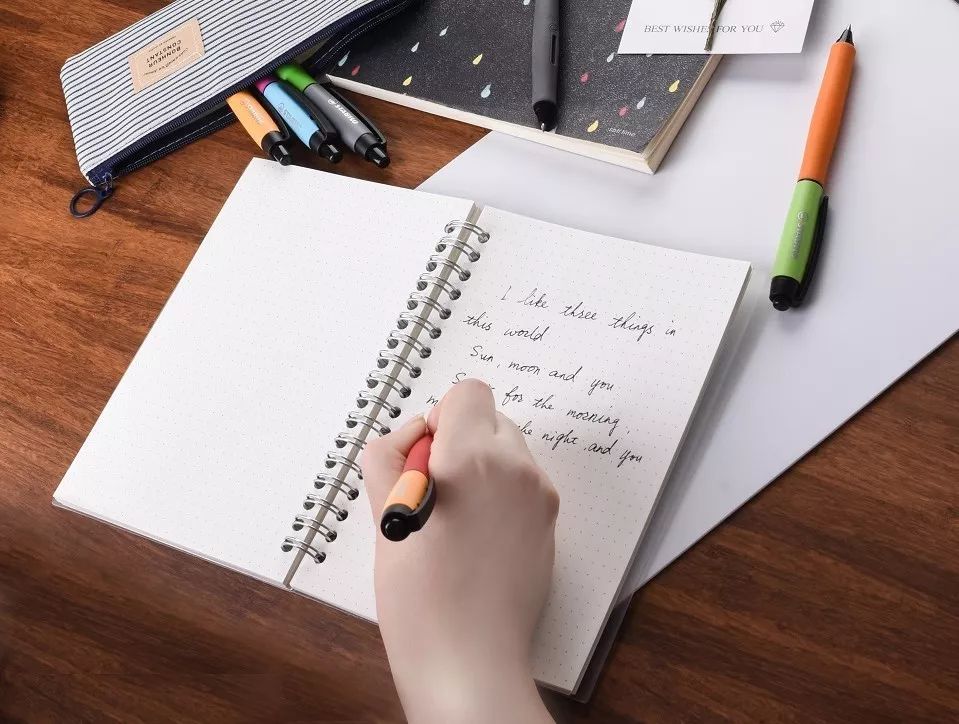 BONHEUR
CONSTANT
BEST WISHES FOR YOU
I like three things in
this world
Sun, moon and you
for the morning,
the night, and you